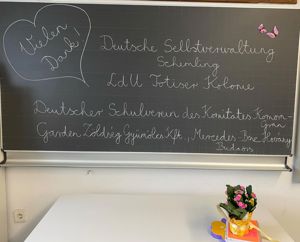 Vielen
Dank!
Deutsche Selbstverwaltung
Schemling
LdU Totiser Kolonie
Deutscher Schulverein des Komitates Komorn-
Gran
Garden Zöldség Gyümölcs Kft., Mercedes Benz
Budaörs